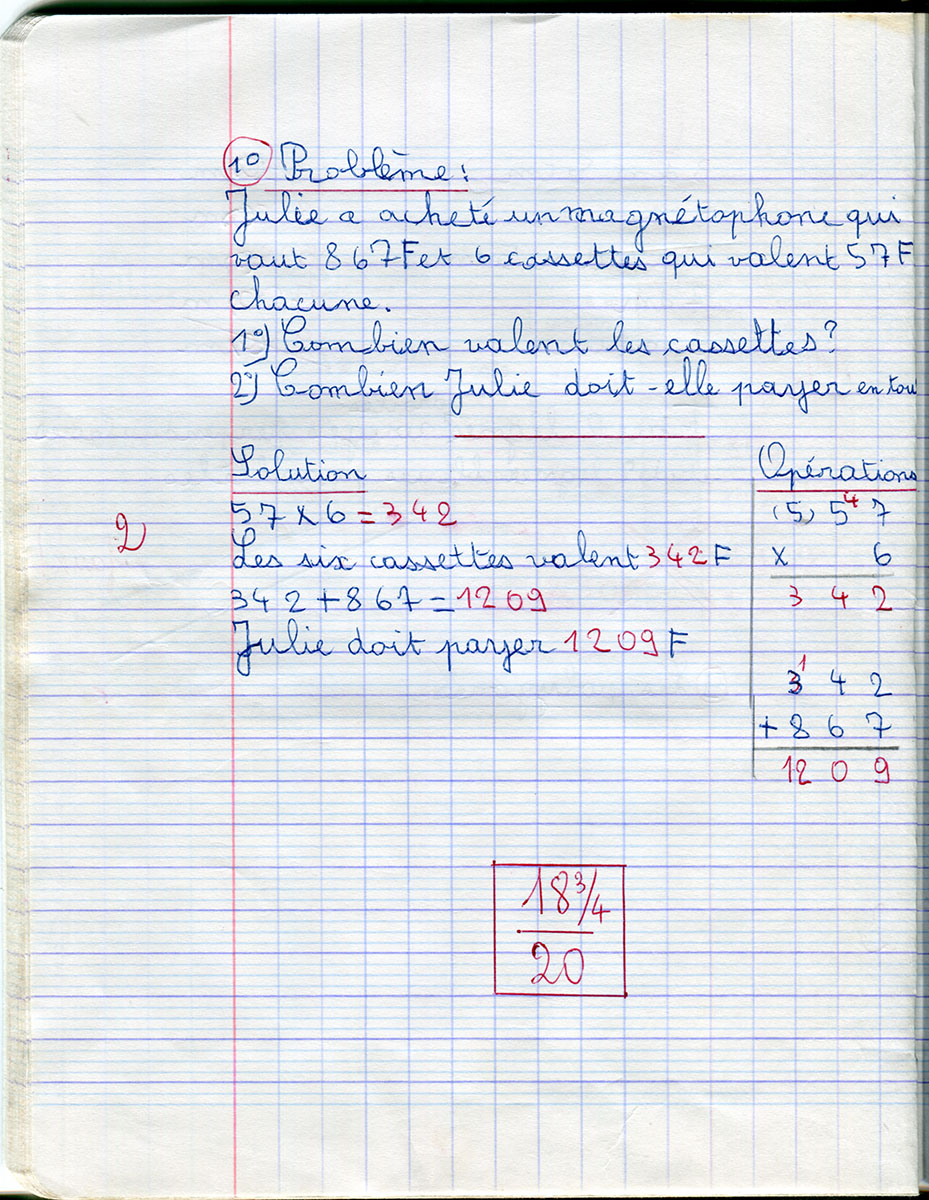 10 Problème :
Julie a acheté un magnétophone qui
vaut 867F et 6 cassettes qui valent 57F
chacune.
1°) Combien valent les cassettes ?
2°) Combien Julie doit-elle payer en tou
Solution
57 x 6 = 342
Les six cassettes valent 342F
342 + 867 = 1209
Julie doit payer 1209F
2
Opérations
(5) 5 4 7
x 6
3 4 2
1
3 4 2
+ 8 6 7
12 0 9
18 3/4
20